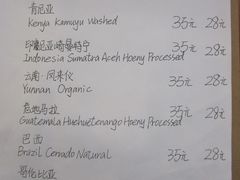 肯尼亚
Kenya Kamuyu Washed 35元 28元
印度尼亚曼特宁
Indonesia Sumatra Aceh Hoeny Processed 35元 28元
云南·凤来仪
Yunnan Organic 35元 28元
危地马拉
Guatemala Huehuetenango Hoeny Processed 35元 28元
巴西
Brazil Cerrado Natural 35元 28元
哥伦比亚